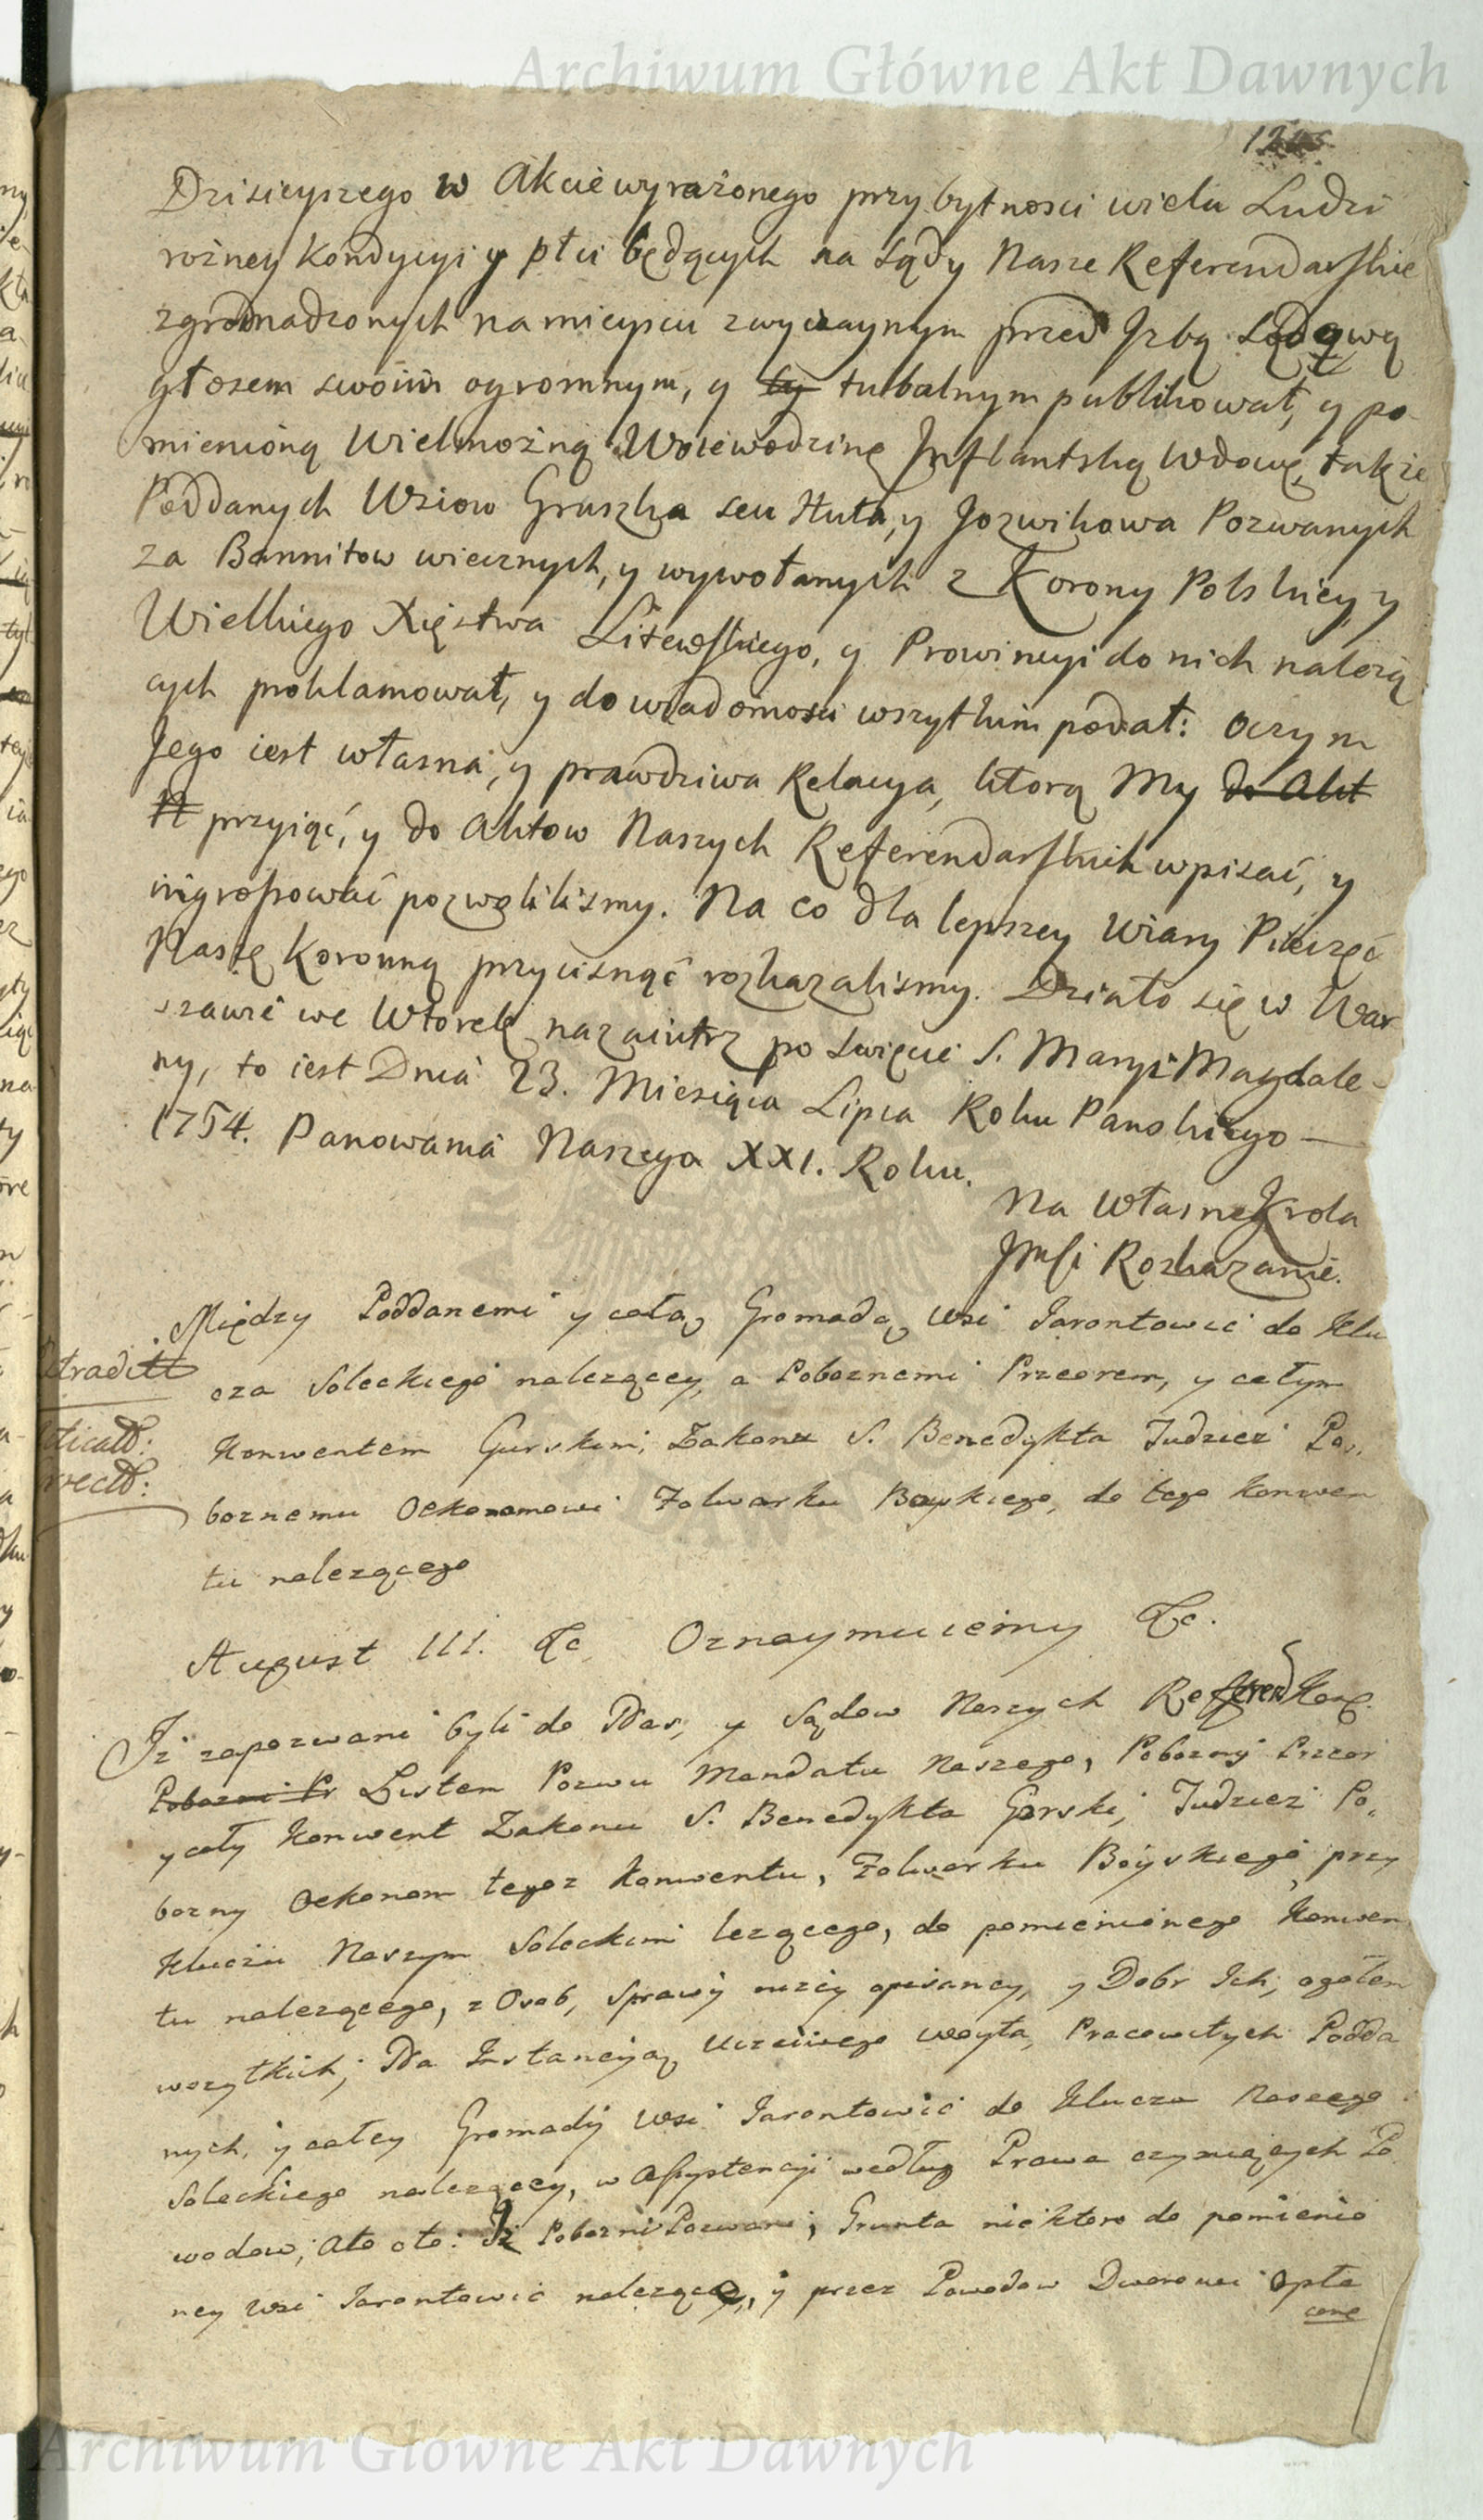 Archiwum Główne Akt Dawnych
Dzisieyszego w Akcie wyrażonego przy bytnosci wielu Ludzi
rożney Kondycyi y płci będących na Sądy Nasze Referendarskie
zgromadzonych na mieyscu zwyczaynym przed Jzbą Sądową
głosem swoim ogromnym, y ty tubalnym publikował, y po
mienioną Wielmożną Woiewodzinę Jnflantską Wdowę, także
Poddanych Wsiow Gruszka seu Huta, y Jozwikowa Pozwanych
za Bannitow wiecznych, y wywołanych z Korony Polskiey y
Wielkiego Xięstwa Litewskiego, y Prowincyi do nich należą
cych proklamował, y do wiadomosci wszytkim podał: Oczym
Jego iest własna, y prawdziwa Relacya, ktorą My do Akt
N przyiąć, y do Aktow Naszych Referendarskich wpisać, y
ingrossować pozwolilismy. Na co dla lepszey Wiary Pieczęć
Naszę Koronną przycisnąć rozkazalismy. Działo się w War
szawie we Wtorek nazaiutrz po Swięcie S. Maryi Magdale-
ny, to iest Dnia 23. Miesiąca Lipca Roku Panskiego —
1754. Panowania Naszego XXI. Roku.
Na Własne Krola
Jmsi Rozkazanie.
Między Poddanemi y całą Gromadą Wsi Jarontowic do Klu
cza Soleckiego nalezącey, a Poboznemi Przeorem, y całym
Konwentem Gurskim, Zakonu S. Benedykta Tudziez Po,,
boznemu Oekonomowi Folwarku Boyskiego, do tego Konwen
tu nalezącego
August III. &c Oznaymuiemy &c.
Iż zapozwani byli do Nas, y Sądow Naszych Referend Kor.
Pobozni Pr Listem Pozwu Mandatu Naszego, Pobozny Przeor
y cały Konwent Zakonu S. Benedykta Gorski, Tudziez Po,,
bozny Oekonom tegoz Konwentu, Folwarku Boyskiego przy
Kluczu Naszym Soleckim lezącego, do pomienionego Konwen
tu nalezącego, z Osob, Sprawy nizey opisaney, y Dobr Ich, ogołem
wszytkich; Na Instancyią Uczciwego Woyta, Pracowitych Podda
nych, y całey Gromady Wsi Jarontowic do Klucza Naszego
Soleckiego nalezącey, w Assystencyi według Prawa czyniących Po
wodow; Ato oto: Iż Pobozni Pozwani, Grunta niektore do pomienio
ney Wsi Jarontowic nalezące, y przez Powodow Dworowi Opła
cone
Archiwum Główne Akt Dawnych